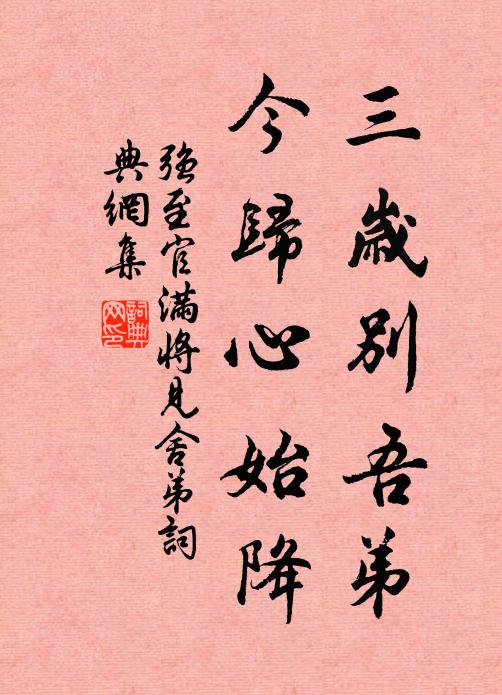 三歲別吾弟
今歸心始降
強至官滿將見舍弟詞
典網集
詞典
网印